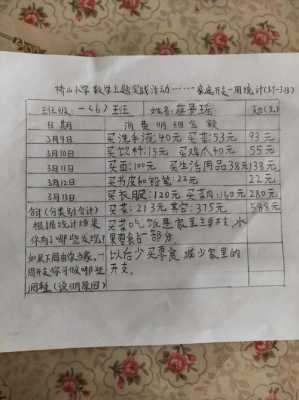 桥山小学数学主题实践活动……家庭开支一周统计(3.7-3.13)
班级：一(6)班 姓名：
日期 消费明细金额
3月9日 买洗手液:40元 买菜:53元 93元
3月10日 买饮料:15元 买鸡爪40元 55元
3月11日 买面:100元 买生活用品38元 138元
3月12日 买书皮和铅笔:22元 22元
3月13日 买衣服:120元 买菜肉:160元 280元
合计(分类别合计) 买菜:213元 其它:375元 588元
根据统计结果 买菜吃饭是家里主要开支,水
你有了哪些发现? 果零食占一部分。
如果下周由你当家,一 以后少买零食,减少家里的
周开支你可做哪些 开支。
调整(说明原因)